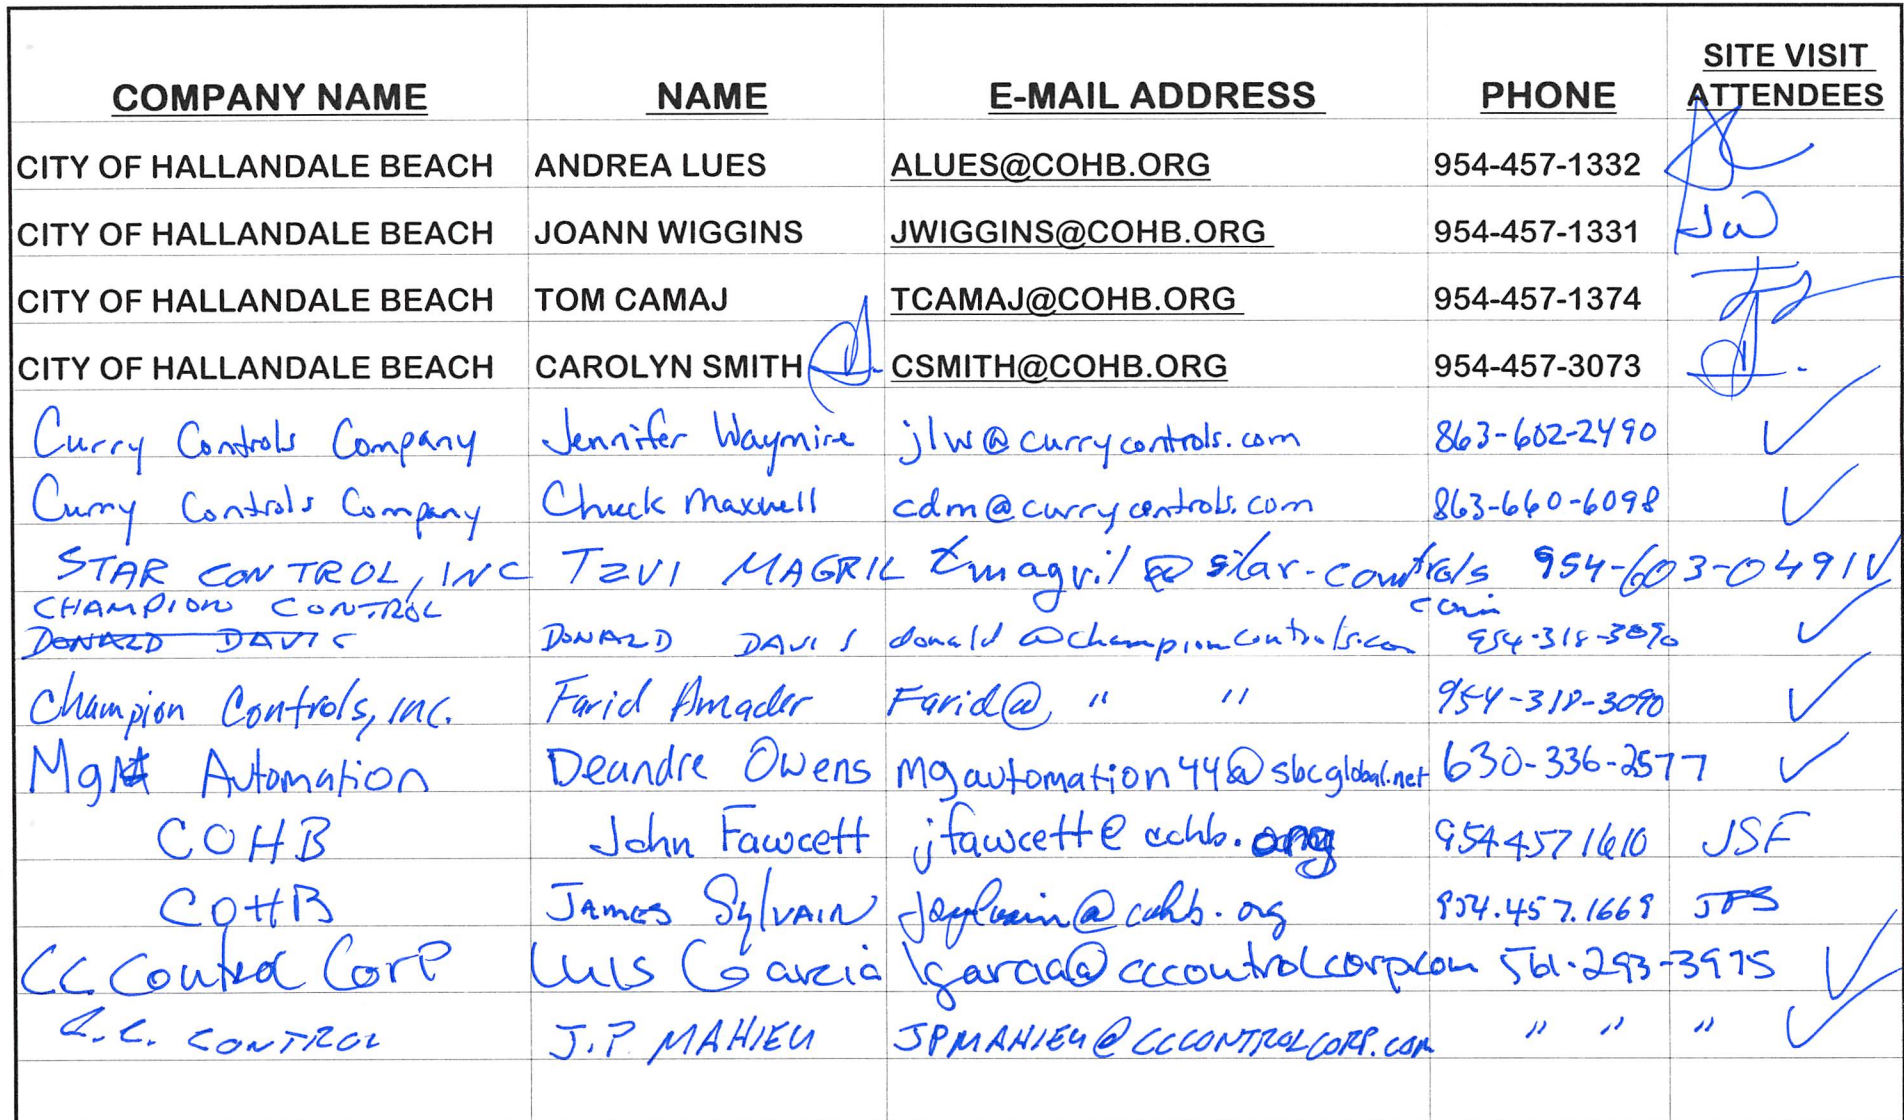 COMPANY NAME NAME E-MAIL ADDRESS PHONE SITE VISIT ATTENDEES
CITY OF HALLANDALE BEACH ANDREA LUES ALUES@COHB.ORG 954-457-1332
CITY OF HALLANDALE BEACH JOANN WIGGINS JWIGGINS@COHB.ORG 954-457-1331 JW
CITY OF HALLANDALE BEACH TOM CAMAJ TCAMAJ@COHB.ORG 954-457-1374
CITY OF HALLANDALE BEACH CAROLYN SMITH CSMITH@COHB.ORG 954-457-3073
Curry Controls Company Jennifer Waymire jlw@currycontrols.com 863-602-2490 ✓
Curry Controls Company Chuck Maxwell cdm@currycontrols.com 863-660-6098 ✓
STAR CONTROL, INC TZVI MAGRIL tmagril@star-controls.com 954-603-0491 ✓
CHAMPION CONTROL
DONALD DAVIS DONALD DAVIS donald@championcontrols.com 954-318-3090 ✓
Champion Controls, Inc. Farid Amador Farid@ " " 954-318-3090 ✓
Mgmt Automation Deandre Owens mgautomation44@sbcglobal.net 630-336-2577 ✓
COHB John Fawcett jfawcett@cohb.org 954 457 1610 JSF
COHB James Sylvain jsylvain@cohb.org 954.457.1669 JFS
CC Control Corp Luis Garcia lgarcia@cccontrolcorp.com 561-293-3975 ✓
C.C. CONTROL J.P. MAHIEU JPMAHIEU@CCCONTROLCORP.COM " " " ✓